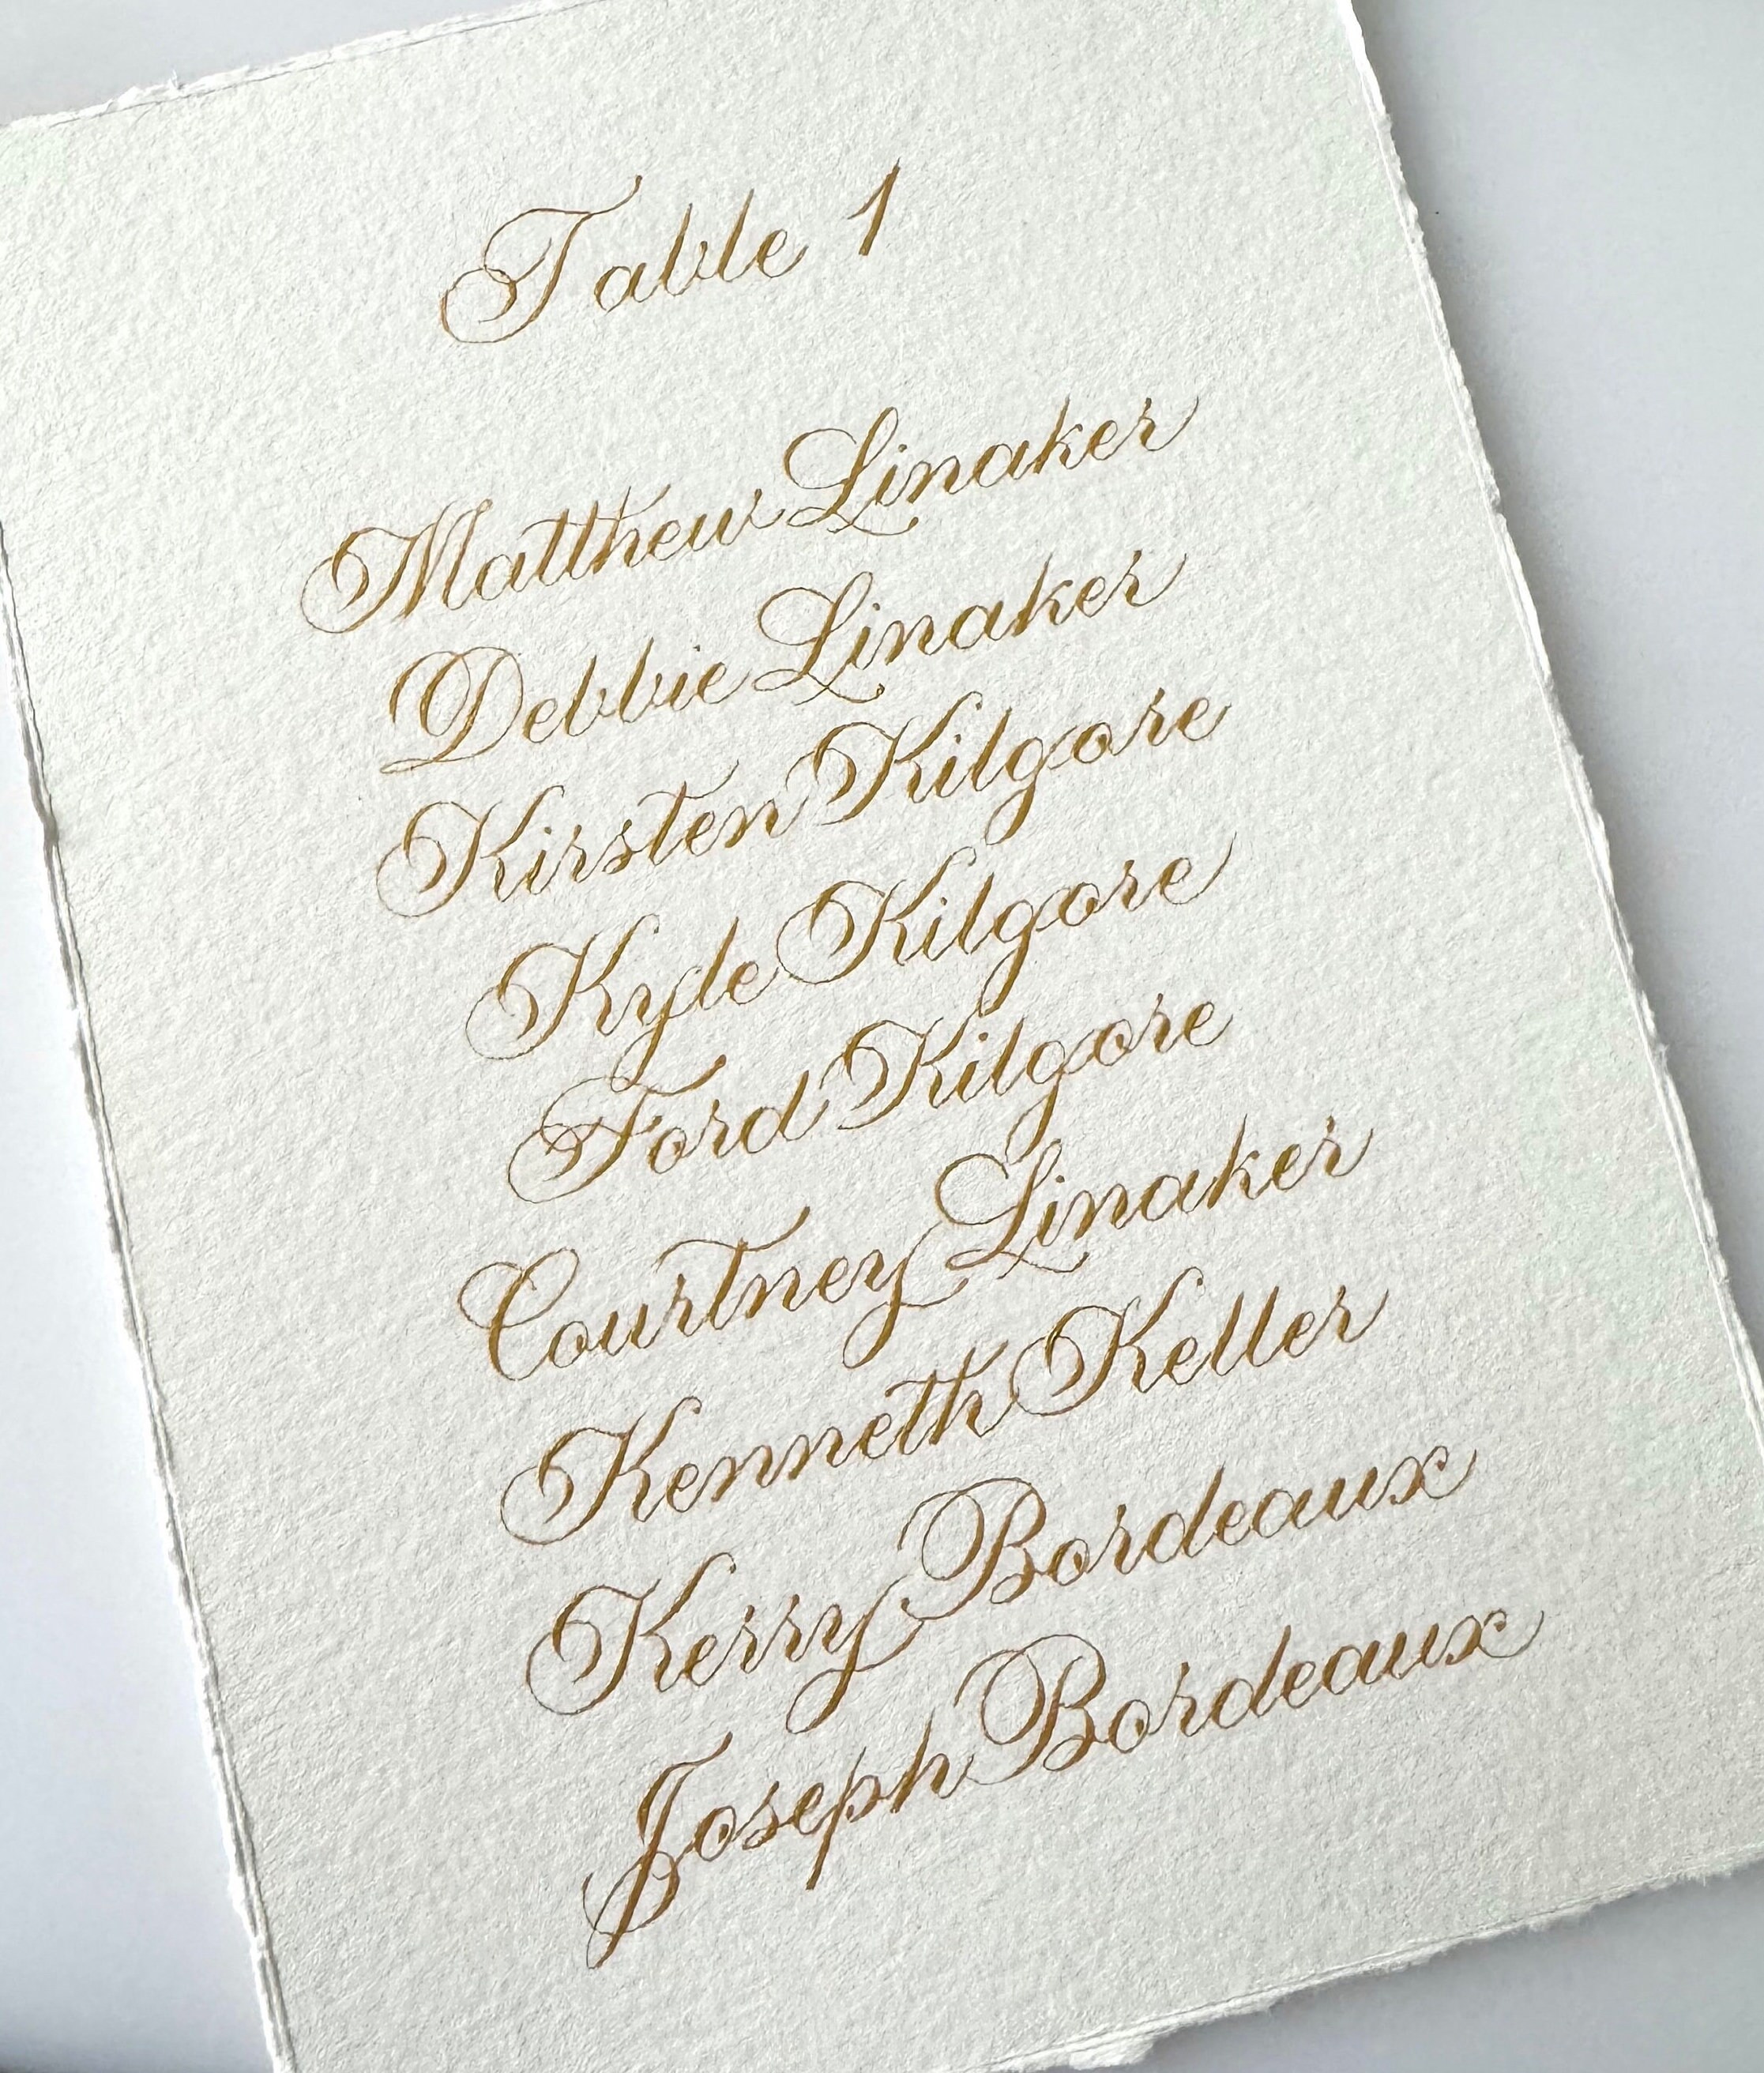 Table 1
Matthew Linaker
Debbie Linaker
Kirsten Kilgore
Kyle Kilgore
Ford Kilgore
Courtney Linaker
Kenneth Keller
Kerry Bordeaux
Joseph Bordeaux